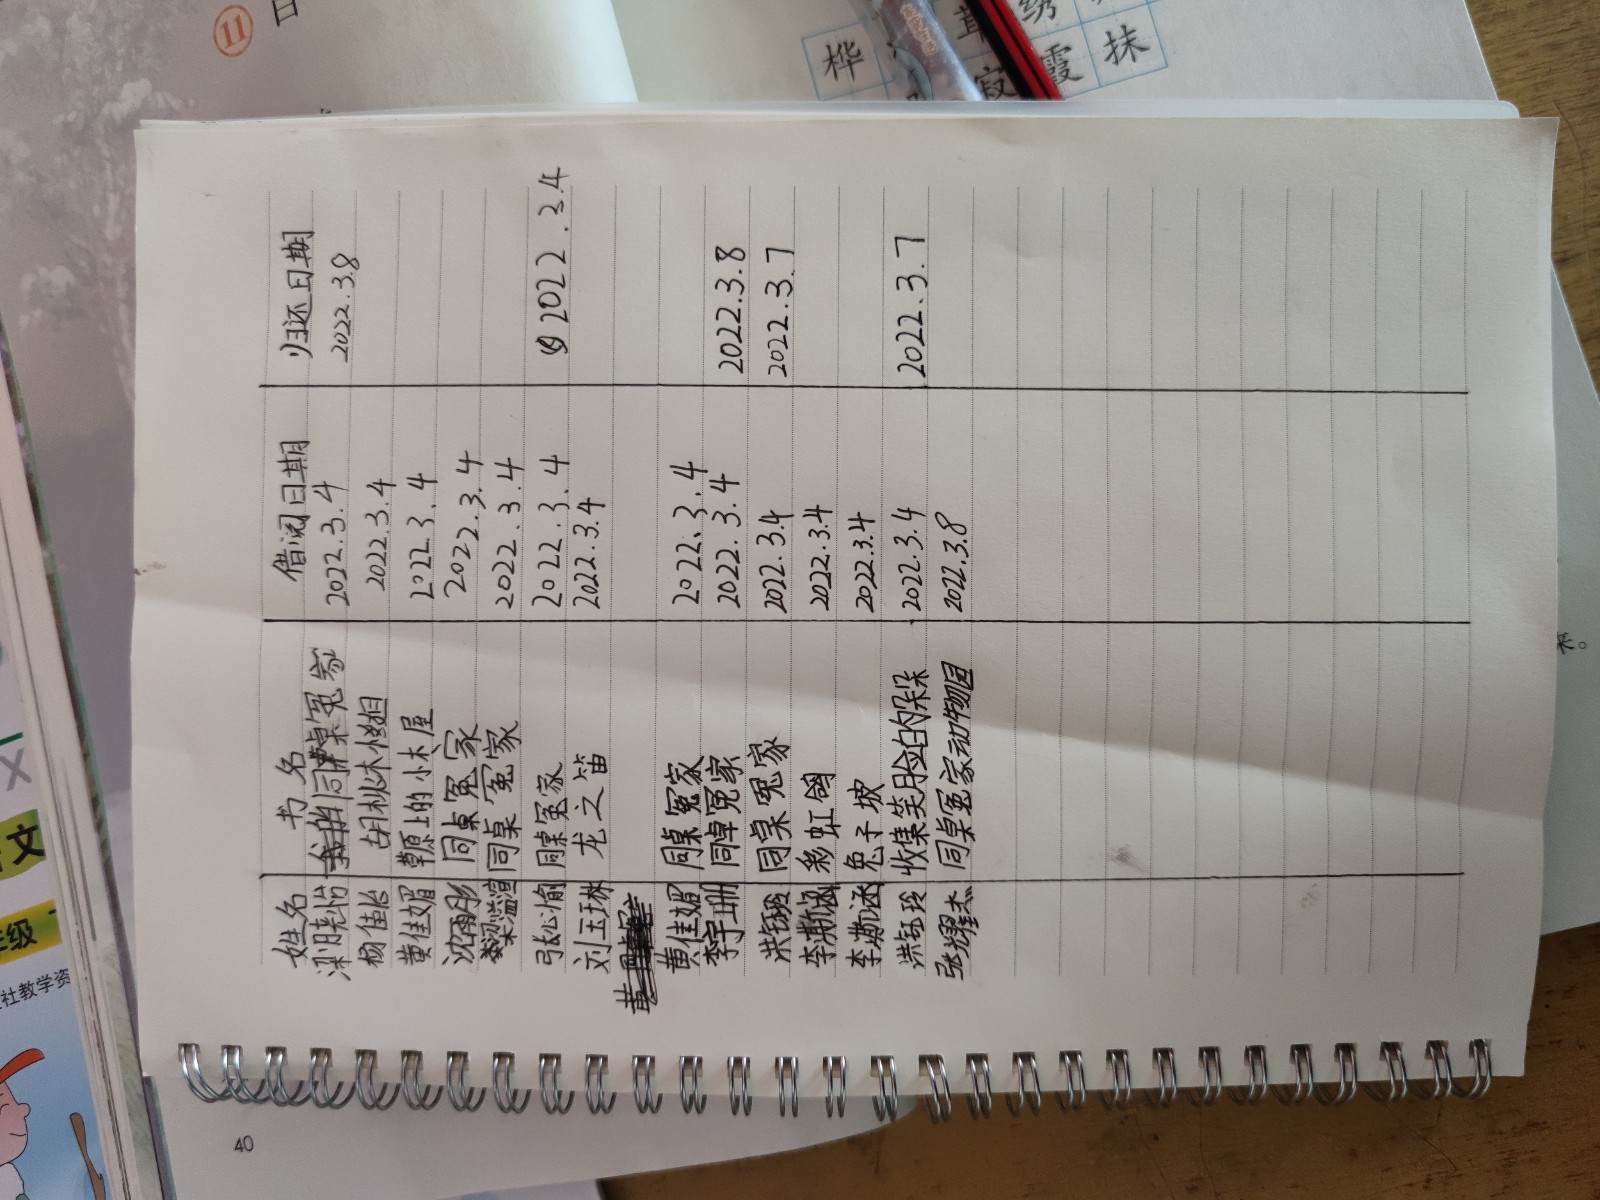 姓名 书名 借阅日期 归还日期
梁晓怡 同桌冤家 2022.3.4 2022.3.8
杨佳怡 胡桃木小姐 2022.3.4
黄佳媚 草原上的小木屋 2022.3.4
沈雨彤 同桌冤家 2022.3.4
梁溢渲 同桌冤家 2022.3.4
张心愉 同桌冤家 2022.3.4 2022.3.4
刘玉琳 龙之笛 2022.3.4
黄
黄佳媚 同桌冤家 2022.3.4
李宇珊 同桌冤家 2022.3.4 2022.3.8
洪钰玲 同桌冤家 2022.3.4 2022.3.7
李满涵 彩虹鸽 2022.3.4
李满涵 兔子坡 2022.3.4
洪钰玲 收集笑脸的朵朵 2022.3.4 2022.3.7
张耀杰 同桌冤家动物园 2022.3.8
40
11 日
桦
寂 霞 抹
绣
文
级
社教学资
来。